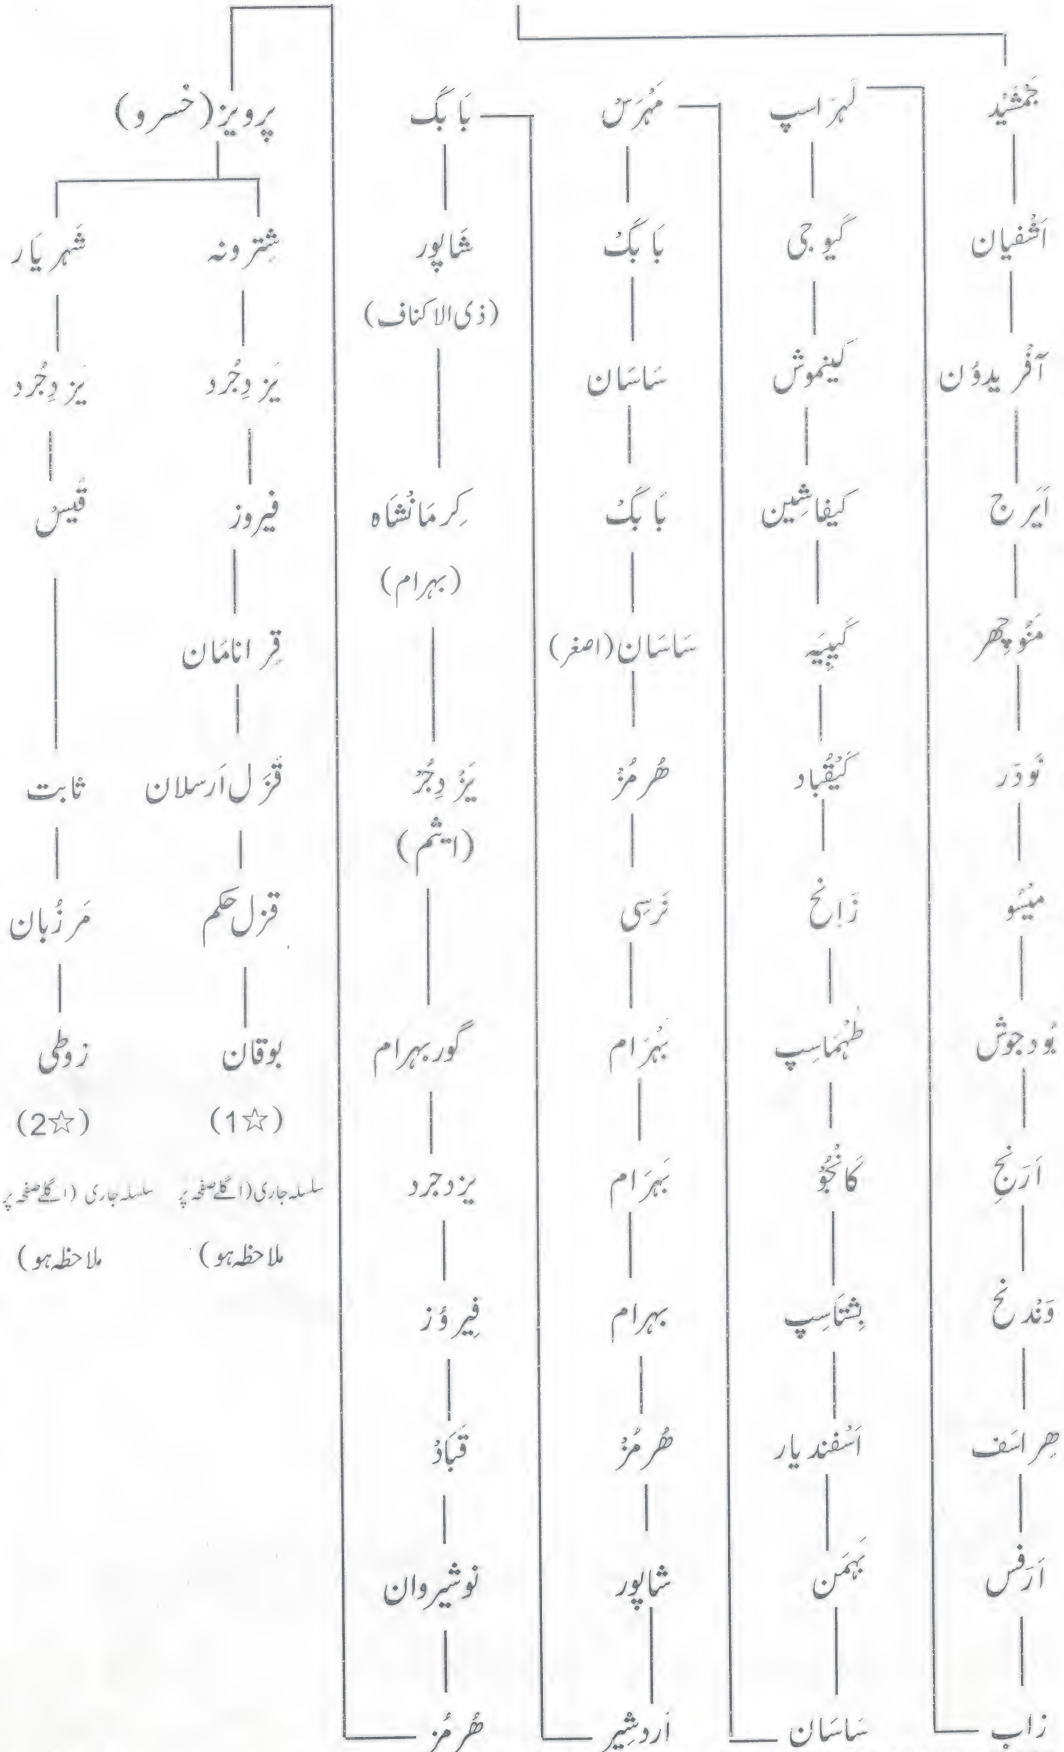 جمشید
اشفیان
آفریدوُن
اَیرج
منُوچہر
نَودَر
میشُو
بُودجوش
اَرَنج
وَندنح
ھِراسَف
اَرَفس
زاب
لہراسپ
گیوجی
کینموش
کیفاشِین
کَیبِیَہ
کَیقُباد
زانح
طہماسِپ
کانجُو
بِشتاسِپ
اَسفندیار
بَہمَن
ساسَان
مہرَس
بابَکْ
ساسَان
بابَکْ
ساسَان (اصغر)
ھُرمُزْ
نَرسِی
بَہرَام
بَہرَام
بہرام
ھُرمُزْ
شاپور
اَردشِیر
بابَگ
شاپور
(ذی الاکناف)
کِرمَانْشَاہ
(بہرام)
یَزْدِجُرْ
(ایثم)
گوربہرام
یزدجرد
فِیروُز
قَبَادْ
نوشیروان
ھُرمُز
پرویز (خسرو)
شِترونہ
یَزدِجُرد
فیروز
قِرانامَان
قَزَل اَرسلان
قزل حکم
بوقان
(1☆)
سلسلہ جاری (اگلے صفحہ پر
ملاحظہ ہو)
شَہریَار
یَزدِجُرد
قَیسْ
ثابت
مَرزُبان
زوطی
(2☆)
سلسلہ جاری (اگلے صفحہ پر
ملاحظہ ہو)